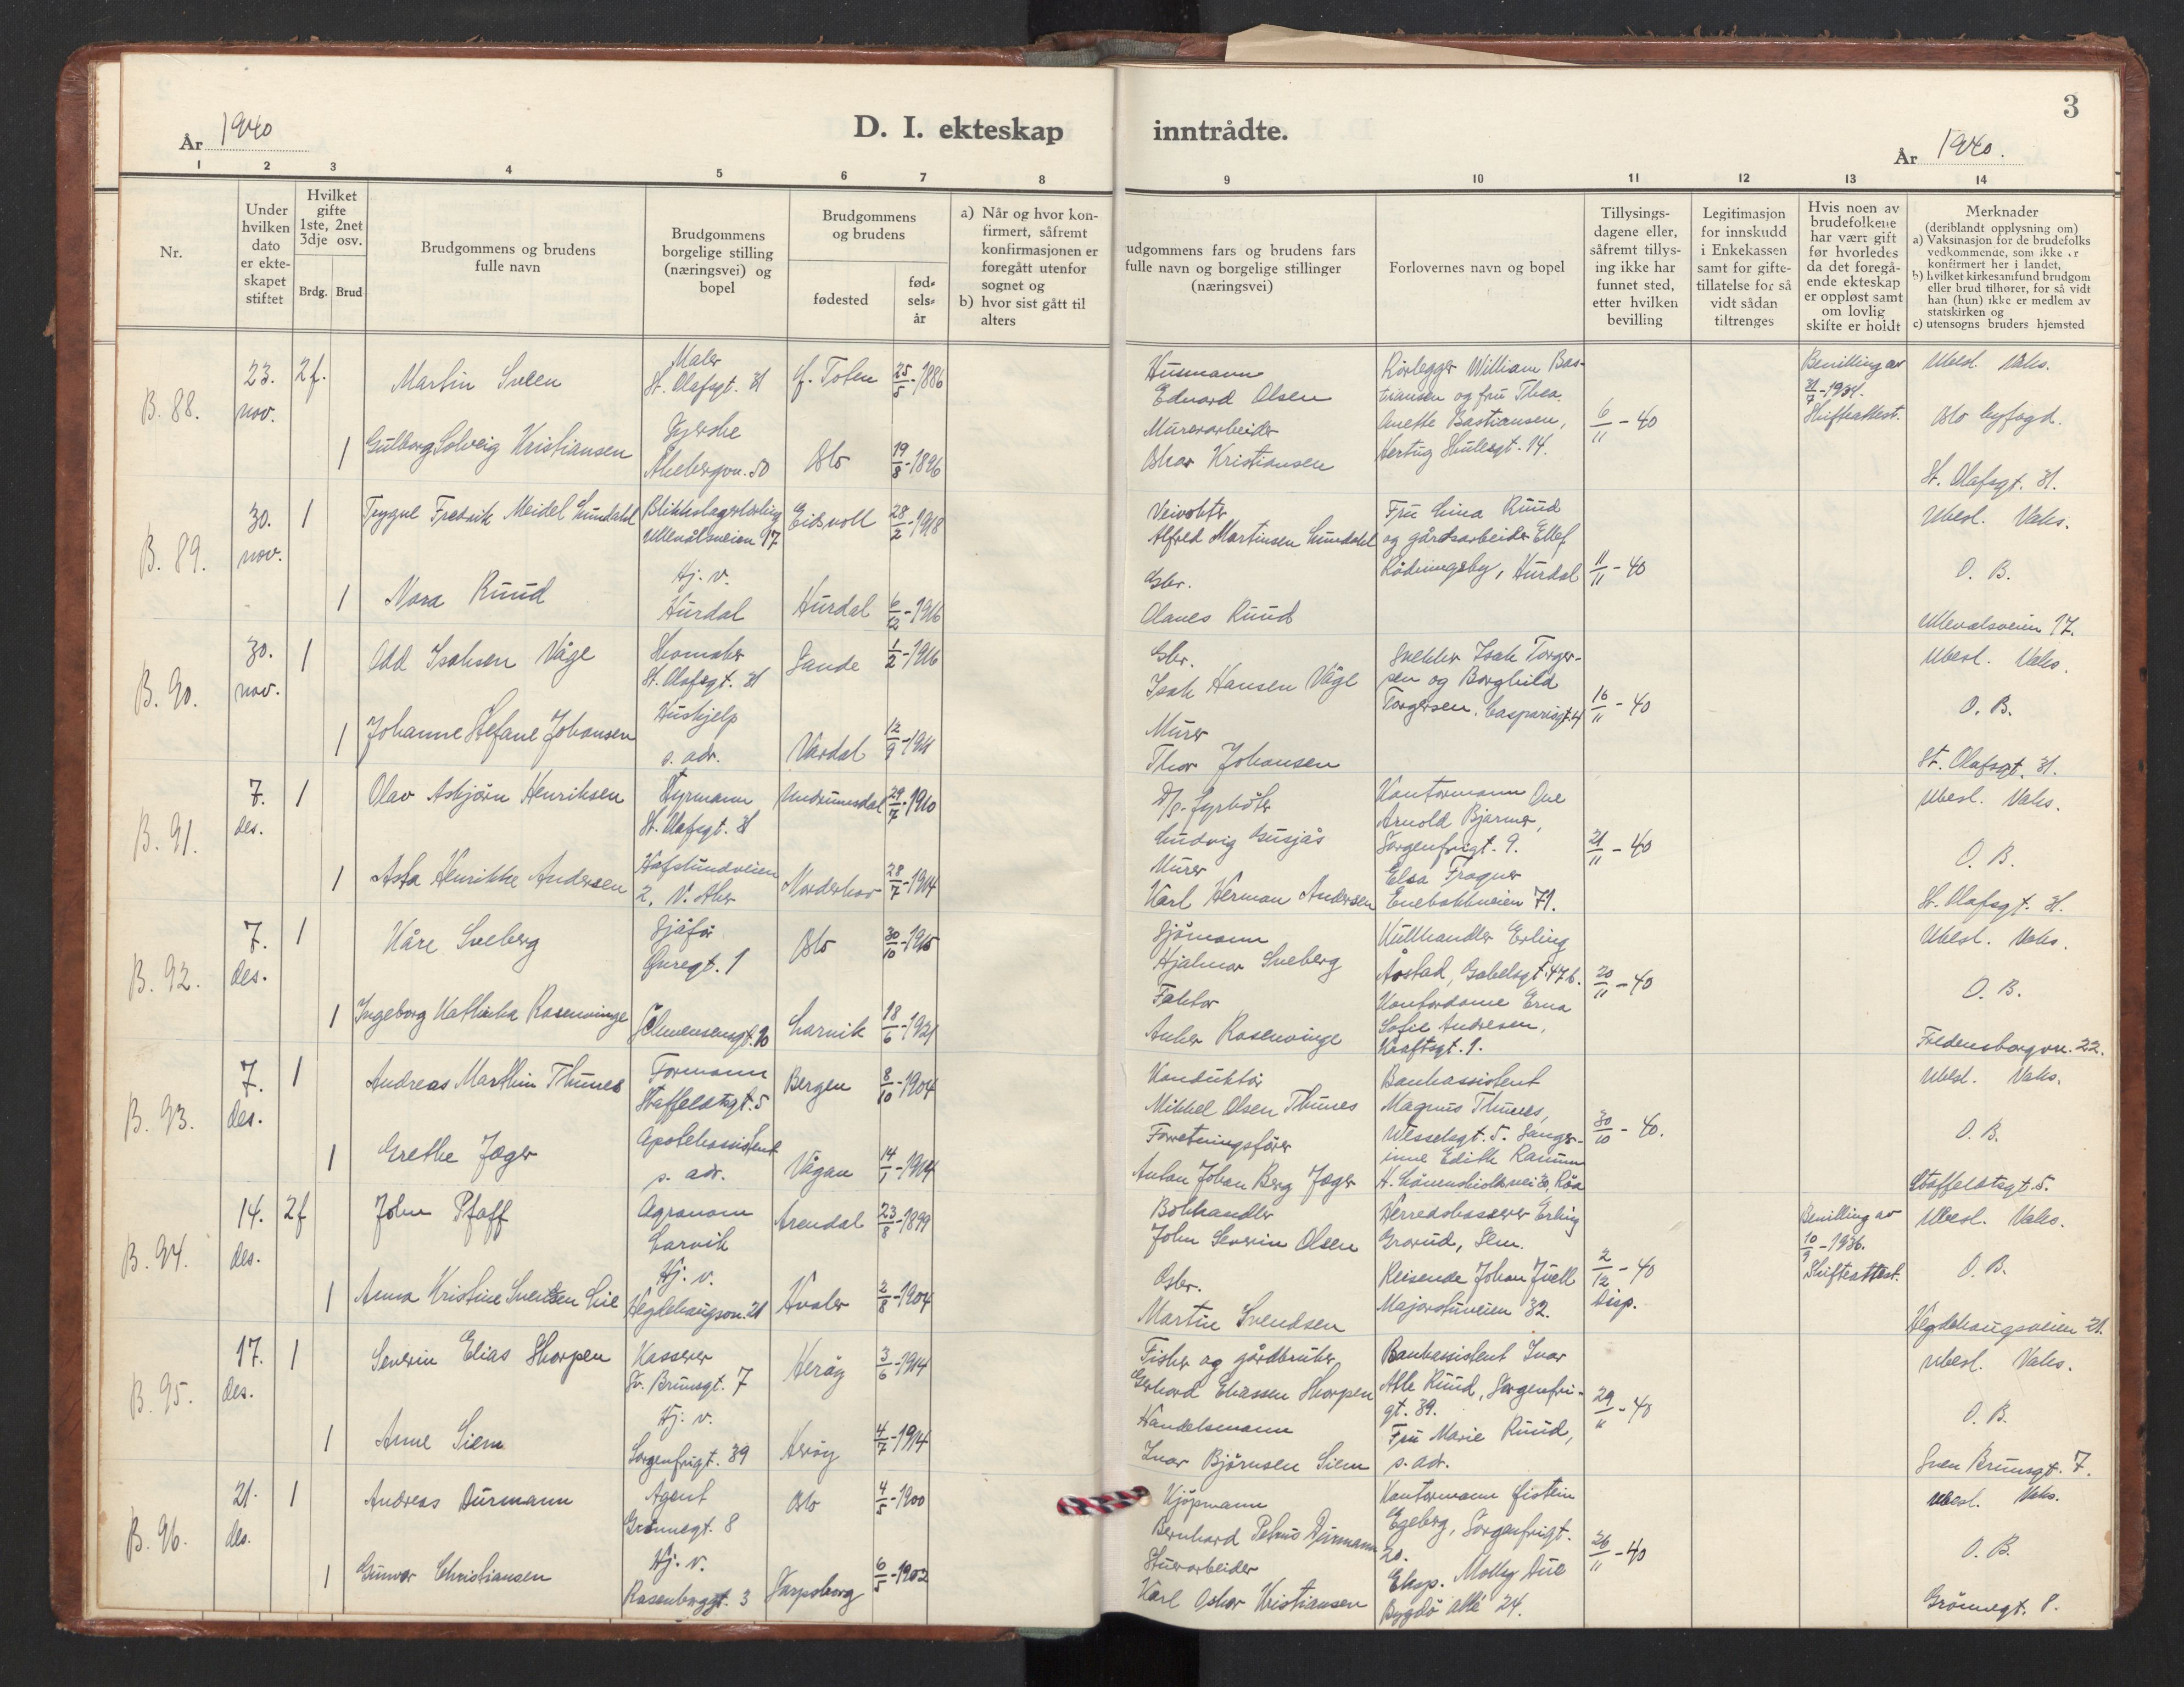 3
År 1940
D. I. ekteskap inntrådte.
År 1940.
1 2 3 4 5 6 7 8 9 10 11 12 13 14
Nr.
Under hvilken dato er ekte- skapet stiftet
Hvilket gifte 1ste, 2net 3dje osv.
Brdg. Brud
Brudgommens og brudens fulle navn
Brudgommens borgelige stilling (næringsvei) og bopel
Brudgommens og brudens
fødested
fød- sels- år
a) Når og hvor kon- firmert, såfremt konfirmasjonen er foregått utenfor sognet og
b) hvor sist gått til alters
udgommens fars og brudens fars fulle navn og borgelige stillinger (næringsvei)
Forlovernes navn og bopel
Tillysings- dagene eller, såfremt tillys- ing ikke har funnet sted, etter hvilken bevilling
Legitimasjon for innskudd i Enkekassen samt for gifte- tillatelse for så vidt sådan tiltrenges
Hvis noen av brudefolkene har vært gift før hvorledes da det foregå- ende ekteskap er oppløst samt om lovlig skifte er holdt
Merknader (deriblandt opplysning om)
a) Vaksinasjon for de brudefolks vedkommende, som ikke er konfirmert her i landet,
b) hvilket kirkesamfund brudgom eller brud tilhører, for så vidt han (hun) ikke er medlem av statskirken og
c) utensogns bruders hjemsted
B. 88. 23. nov. 2f. Martin Sveen Maler St. Olafsgt. 31 Ø. Toten 25/5-1886
1 Gulborg Solveig Kristiansen Syerske Åkebergvn. 50 Oslo 19/8-1896
Husmann Edvard Olsen
Murerarbeider Oskar Kristiansen
Rørlegger William Bas- tiansen og fru Thea Anette Bastiansen, Hertug Skulesgt. 14.
6/11-40
Bevilling av 31/7-1934. Skifteattest.
Ubesl. Vaks. Oslo byfogd. St. Olafsgt. 31.
B. 89. 30. nov. 1 Trygve Fredrik Meidel Lundahl Blikkslagerlærling Ullevålsveien 17 Eidsvoll 28/2-1918
1 Nora Ruud Hj. v. Hurdal Hurdal 6/12-1916
Veivokter Alfred Martinsen Lundahl
Gbr. Olaves Ruud
Fru Lina Ruud og gårdsarbeider Ellef Rådningsby, Hurdal
11/11-40
Ubesl. Vaks. O. B. Ullevalsveien 17.
B. 90. 30. nov. 1 Odd Isaksen Våge Skomaker St. Olafsgt. 31 Sande 1/2-1916
1 Johanne Stefane Johansen Hushjelp s. adr. Vardal 12/9-1911
Gbr. Isak Hansen Våge
Murer Thor Johansen
Snekker Isak Torger- sen og Borghild Torgersen, Casparisgt. 4
16/11-40
Ubesl. Vaks. O. B. St. Olafsgt. 31.
B. 91. 7. des. 1 Olav Asbjörn Henriksen Styrmann St. Olafsgt. 31 Undrumsdal 29/7-1910
1 Asta Henrikke Andersen Hafslundveien 2, V. Aker Norderhov 28/7-1914
D/S-fyrböter Ludvig
Murer Karl Herman Andersen
Kontormann Ove Arnold Bjarmer, Sorgenfrigt. 9. Elsa Frogner Enebakkveien 71.
21/11-40
Ubesl. Vaks. O. B. St. Olafsgt. 31.
B. 92. 7. des. 1 Kåre Sveberg Sjåför Oslo 30/10-1915
1 Ingeborg Kathinka Rosenvinge Clemensensgt. 10 Larvik 18/6-1921
Sjömann Hjalmar Sveberg
Faktor Anker Rosenvinge
Kullhandler Erling Åvstad, Gabelsgt. 47 b. Kontordame Erna Sofie Andresen, Kraftsgt. 1.
20/11-40
Ubesl. Vaks. O. B. Fredensborgvn. 22.
B. 93. 7. des. 1 Andreas Marthin Thunes Formann Staffeldtsgt. 5 Bergen 8/10-1904
1 Grethe Jæger Apotekassistent s. adr. Vågan 14/1-1914
Konduktör Mikkel Olsen Thunes
Forretningsförer Anton Johan Berg Jæger
Bankassistent Magnus Thunes, Wesselsgt. 5. Sanger- inne Edith
30/10-40.
Ubesl. Vaks. O. B. Staffeldtsgt. 5.
B. 94. 14. des. 2f John Pfaff Agronom Larvik Arendal 23/8-1899
1 Anna Kristine Svendsen Lie Hj. v. Hegdehaugsvn. 21 Hvaler 2/8-1904
Bokhandler John Severin Olsen
Gbr. Martin Svendsen
Herredskasserer Erling Grorud, Sem. Reisende Johan Juell Majorstuveien 32.
2/12-40 Disp.
Bevilling av 10/9-1936. Skifteattest.
Ubesl. Vaks. O. B. Hegdehaugsveien 21.
B. 95. 17. des. 1 Severin Elias Skorpen Kasserer Sv. Brunsgt. 7 Heröy 3/6-1914
1 Anne Siem Hj. v. Sorgenfrigt. 39 Heröy 4/7-1914
Fisker og gårdbruker Gerhard Eliassen Skorpen
Handelsmann Ivar Björnsen Siem
Bankassistent Ivar Atle Ruud, Sorgenfri- gt. 39. Fru Marie Ruud, s. adr.
29/11-40
Ubesl. Vaks. O. B. Sven Brunsgt. 7.
B. 96. 21. des. 1 Andreas Durmann Agent Grönnegt. 8 Oslo 4/5-1900
1 Gunvor Christiansen Hj. v. Rosenborggt. 3 Sarpsborg 6/5-1902
Kjöpmann Bernhard Petrus Durmann
Stuerarbeider Karl Oskar Kristiansen
Kontormann Eistein Egeberg, Sorgenfrigt. 20. Eksp. Molly Due Bygdö allé 24.
26/11-40
Ubesl. Vaks. O. B. Grönnegt. 8.